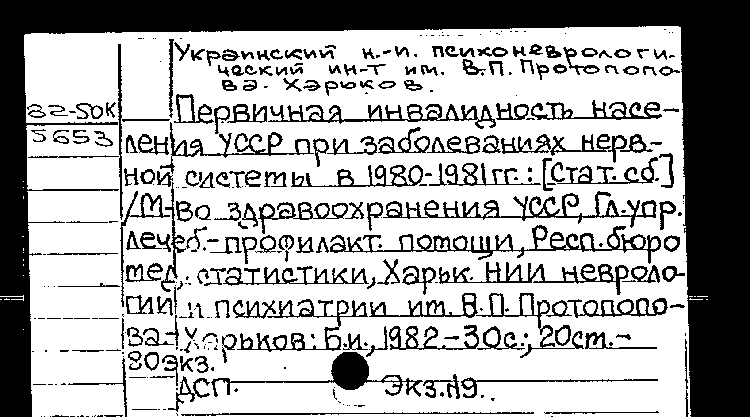 Украинский н.-и. психоневрологи-
ческий ин-т им. В.П. Протопопо-
ва. Харьков.
82-50К
5653
Первичная инвалидность насе-
ления УССР при заболеваниях нерв-
ной системы в 1980-1981 гг.: [Стат. сб.]
/М-во здравоохранения УССР, Гл. упр.
лечеб.-профилакт. помощи, Респ. бюро
мед. статистики, Харьк. НИИ невроло-
гии и психиатрии им. В.П. Протопопо-
ва.- Харьков: Б.и., 1982.- 30с.; 20см.-
80экз.
ДСП. Экз.№9.